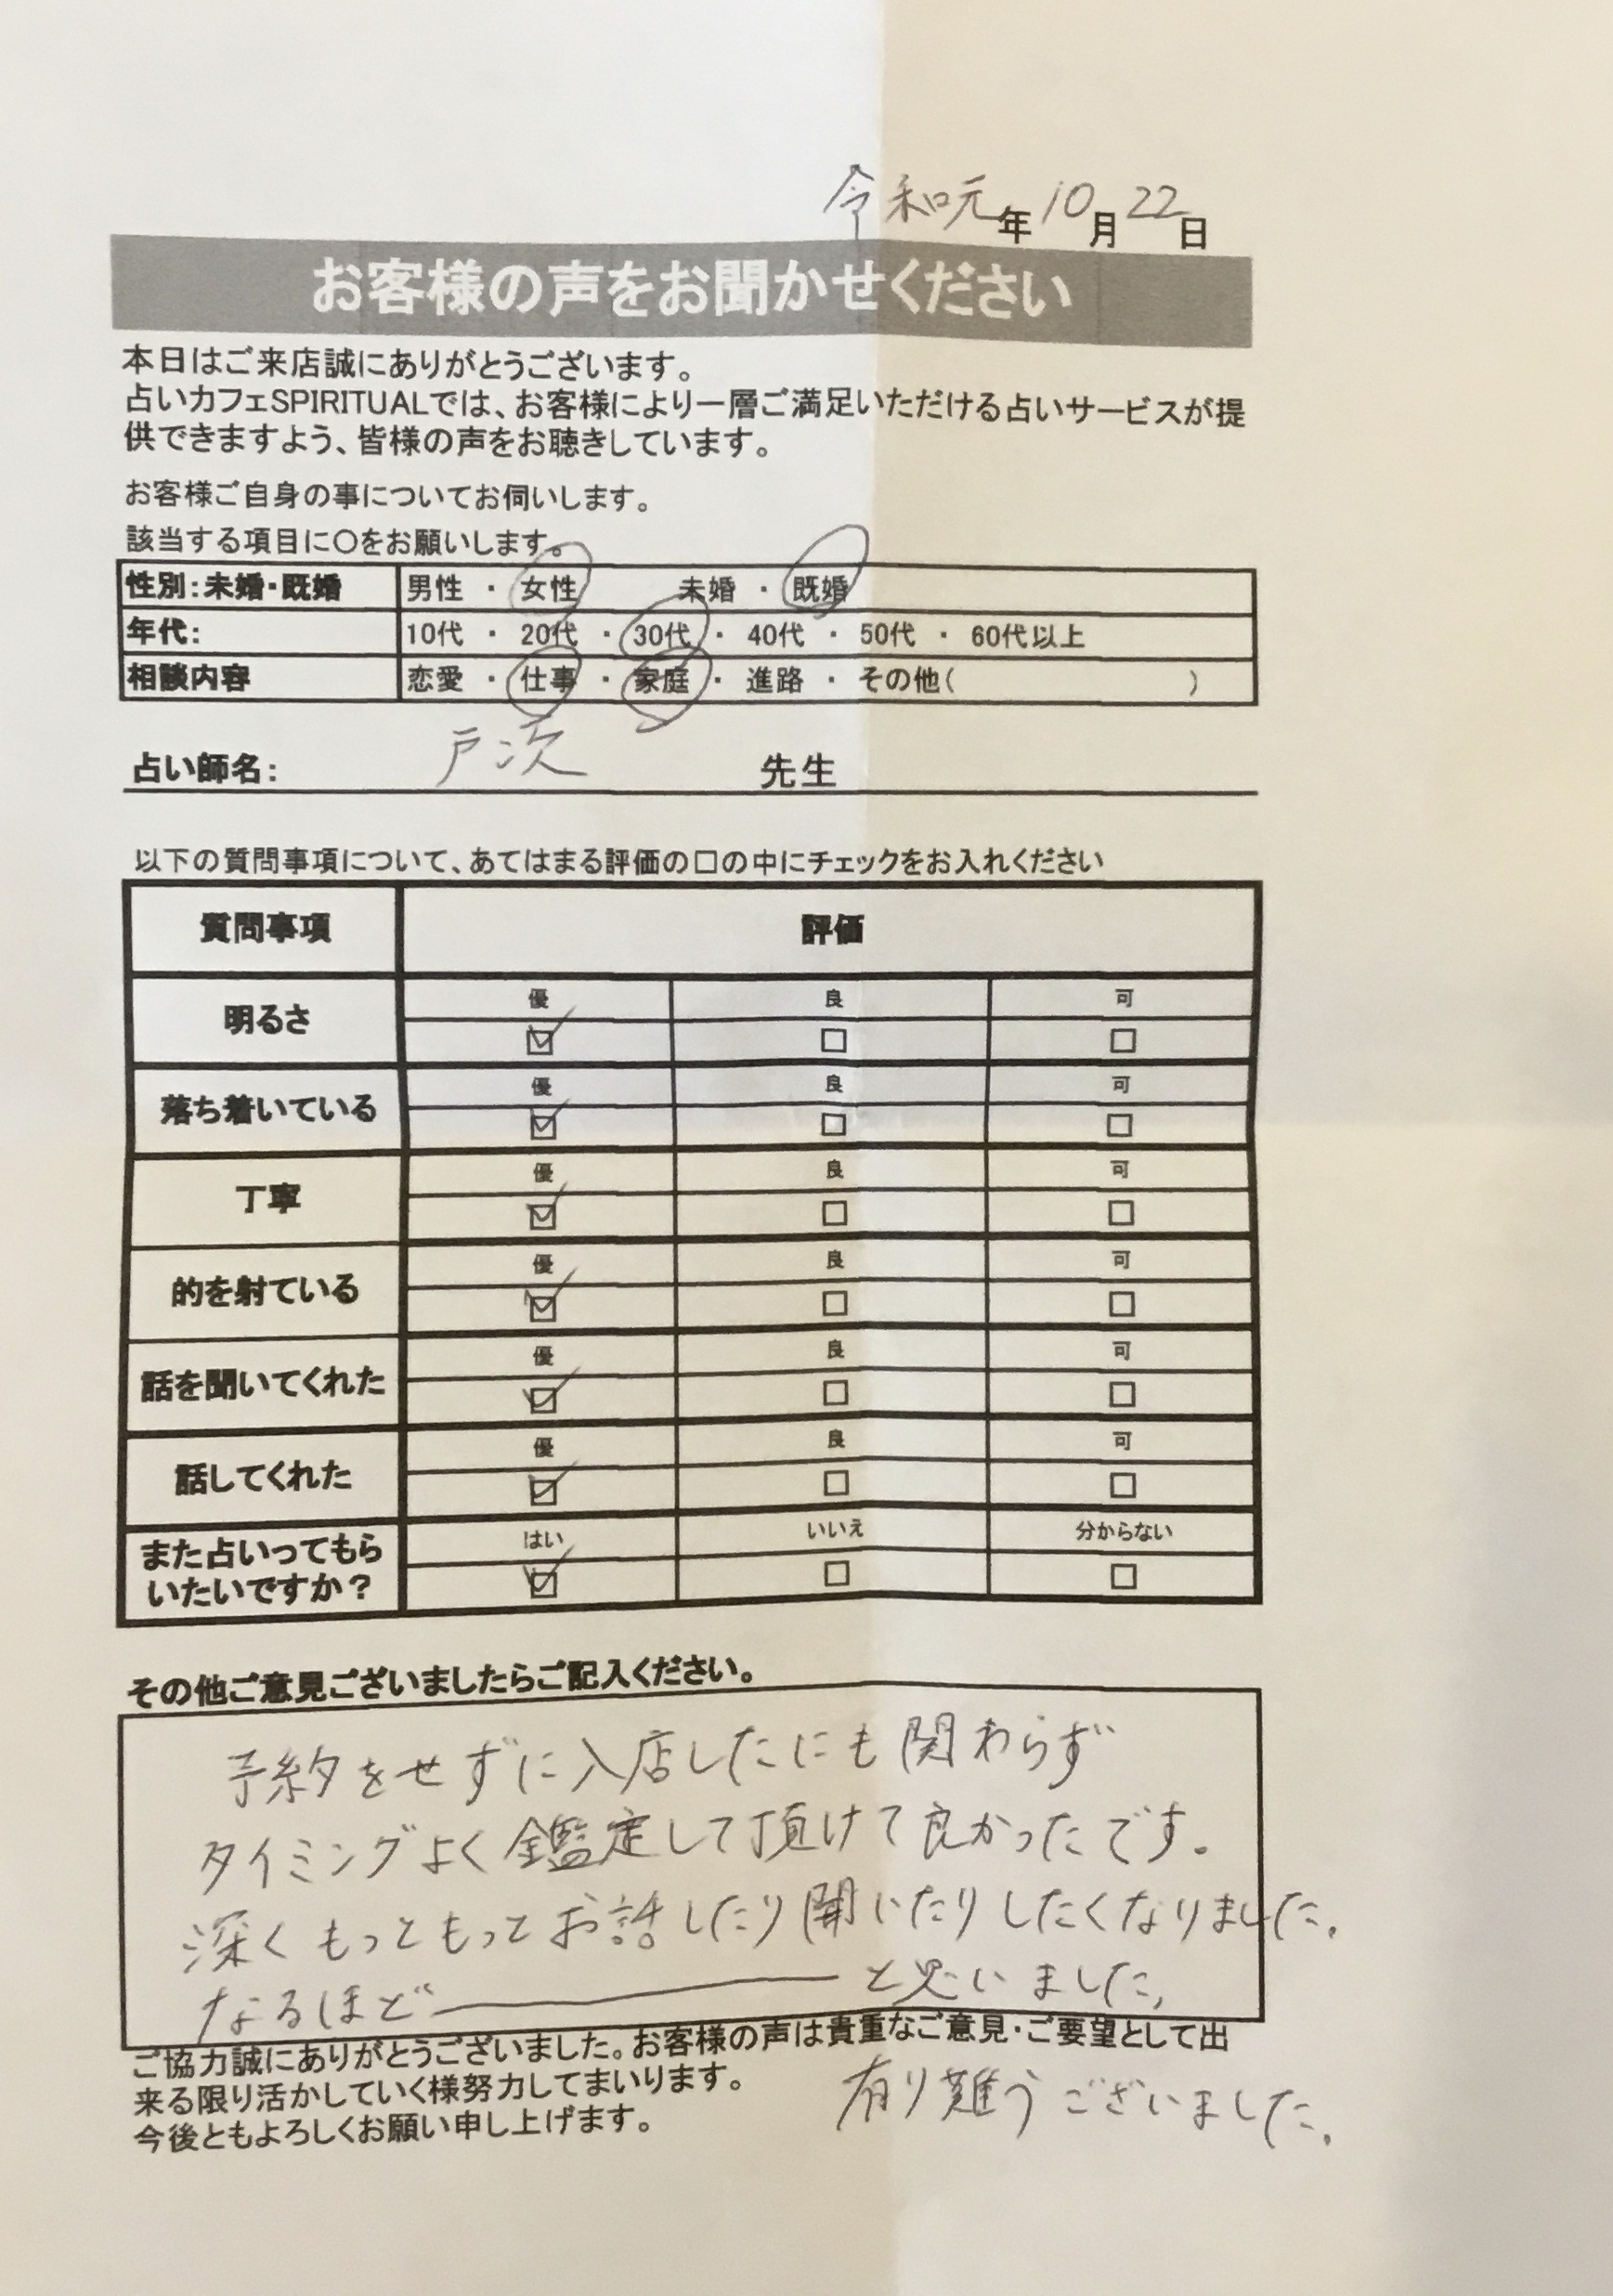 令和元年10月22日
お客様の声をお聞かせください
本日はご来店誠にありがとうございます。
占いカフェSPIRITUALでは、お客様により一層ご満足いただける占いサービスが提
供できますよう、皆様の声をお聴きしています。
お客様ご自身の事についてお伺いします。
該当する項目に〇をお願いします。
性別：未婚・既婚 男性 ・ 女性 未婚 ・ 既婚
年代： 10代 ・ 20代 ・ 30代 ・ 40代 ・ 50代 ・ 60代以上
相談内容 恋愛 ・ 仕事 ・ 家庭 ・ 進路 ・ その他（ ）
占い師名： 戸次 先生
以下の質問事項について、あてはまる評価の□の中にチェックをお入れください
質問事項 評価
明るさ 優 良 可
☑ □ □
落ち着いている 優 良 可
☑ □ □
丁寧 優 良 可
☑ □ □
的を射ている 優 良 可
☑ □ □
話を聞いてくれた 優 良 可
☑ □ □
話してくれた 優 良 可
☑ □ □
また占いってもら はい いいえ 分からない
いたいですか？ ☑ □ □
その他ご意見ございましたらご記入ください。
予約をせずに入店したにも関わらず
タイミングよく鑑定して頂けて良かったです。
深くもっともっとお話したり聞いたりしたくなりました。
なるほど――――と思いました。
ご協力誠にありがとうございました。お客様の声は貴重なご意見・ご要望として出
来る限り活かしていく様努力してまいります。
今後ともよろしくお願い申し上げます。
有り難うございました。